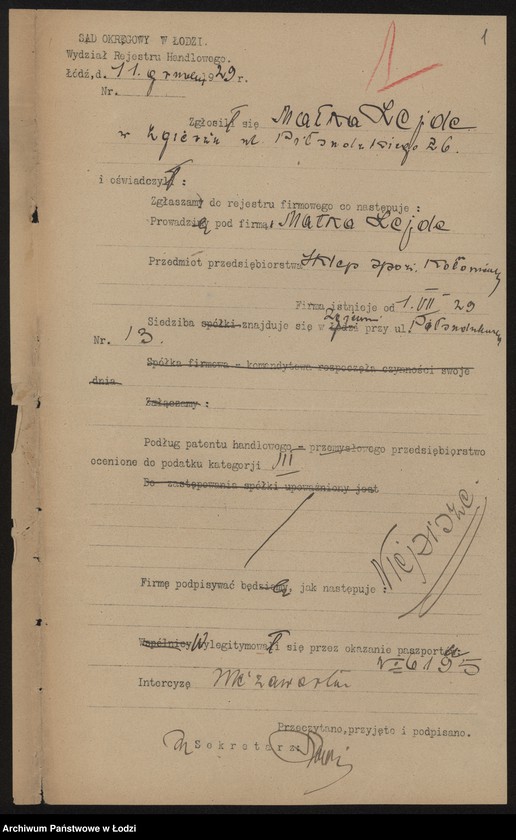 1
SĄD OKRĘGOWY W ŁODZI.
Wydział Rejestru Handlowego.
Łódź, d. 11. grudnia 1929 r.
Nr.
Zgłosił się Małka Lejde
w Zgierzu ul. Piłsudskiego 26.
i oświadczył :
Zgłaszam do rejestru firmowego co następuje :
Prowadzę pod firmą: Małka Lejde
Przedmiot przedsiębiorstwa Sklep spoż.
Firma istnieje od 1. VII 29
Siedziba spółki znajduje się w Łodzi Zgierzu przy ul. Piłsudskiego
Nr. 13.
Spółka firmowa - komandytowa rozpoczęła czynności swoje
dnia
Załączamy :
Podług patentu handlowego - przemysłowego przedsiębiorstwo
ocenione do podatku kategorji III
Do zastępowania spółki upoważniony jest
Firmę podpisywać będę, jak następuje :
Niepisze
Wspólnicy Wylegitymował się przez okazanie paszportu
Intercyzę nie zawarła
Przeczytano, przyjęto i podpisano.
Sekretarz:
Archiwum Państwowe w Łodzi